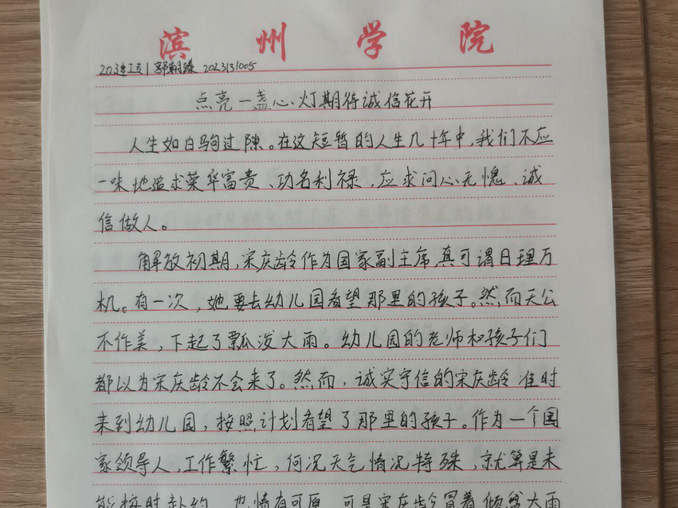 滨州学院
点亮一盏心灯期待诚信花开
人生如白驹过隙。在这短暂的人生几十年中,我们不应
一味地追求荣华富贵、功名利禄,应求问心无愧、诚
信做人。
解放初期,宋庆龄作为国家副主席,真可谓日理万
机。有一次,她要去幼儿园看望那里的孩子。然而天公
不作美,下起了瓢泼大雨。幼儿园的老师和孩子们
都以为宋庆龄不会来了。然而,诚实守信的宋庆龄准时
来到幼儿园,按照计划看望了那里的孩子。作为一个国
家领导人,工作繁忙,何况天气情况特殊,就算是未
能按时赴约,也情有可原,可是宋庆龄冒着倾盆大雨